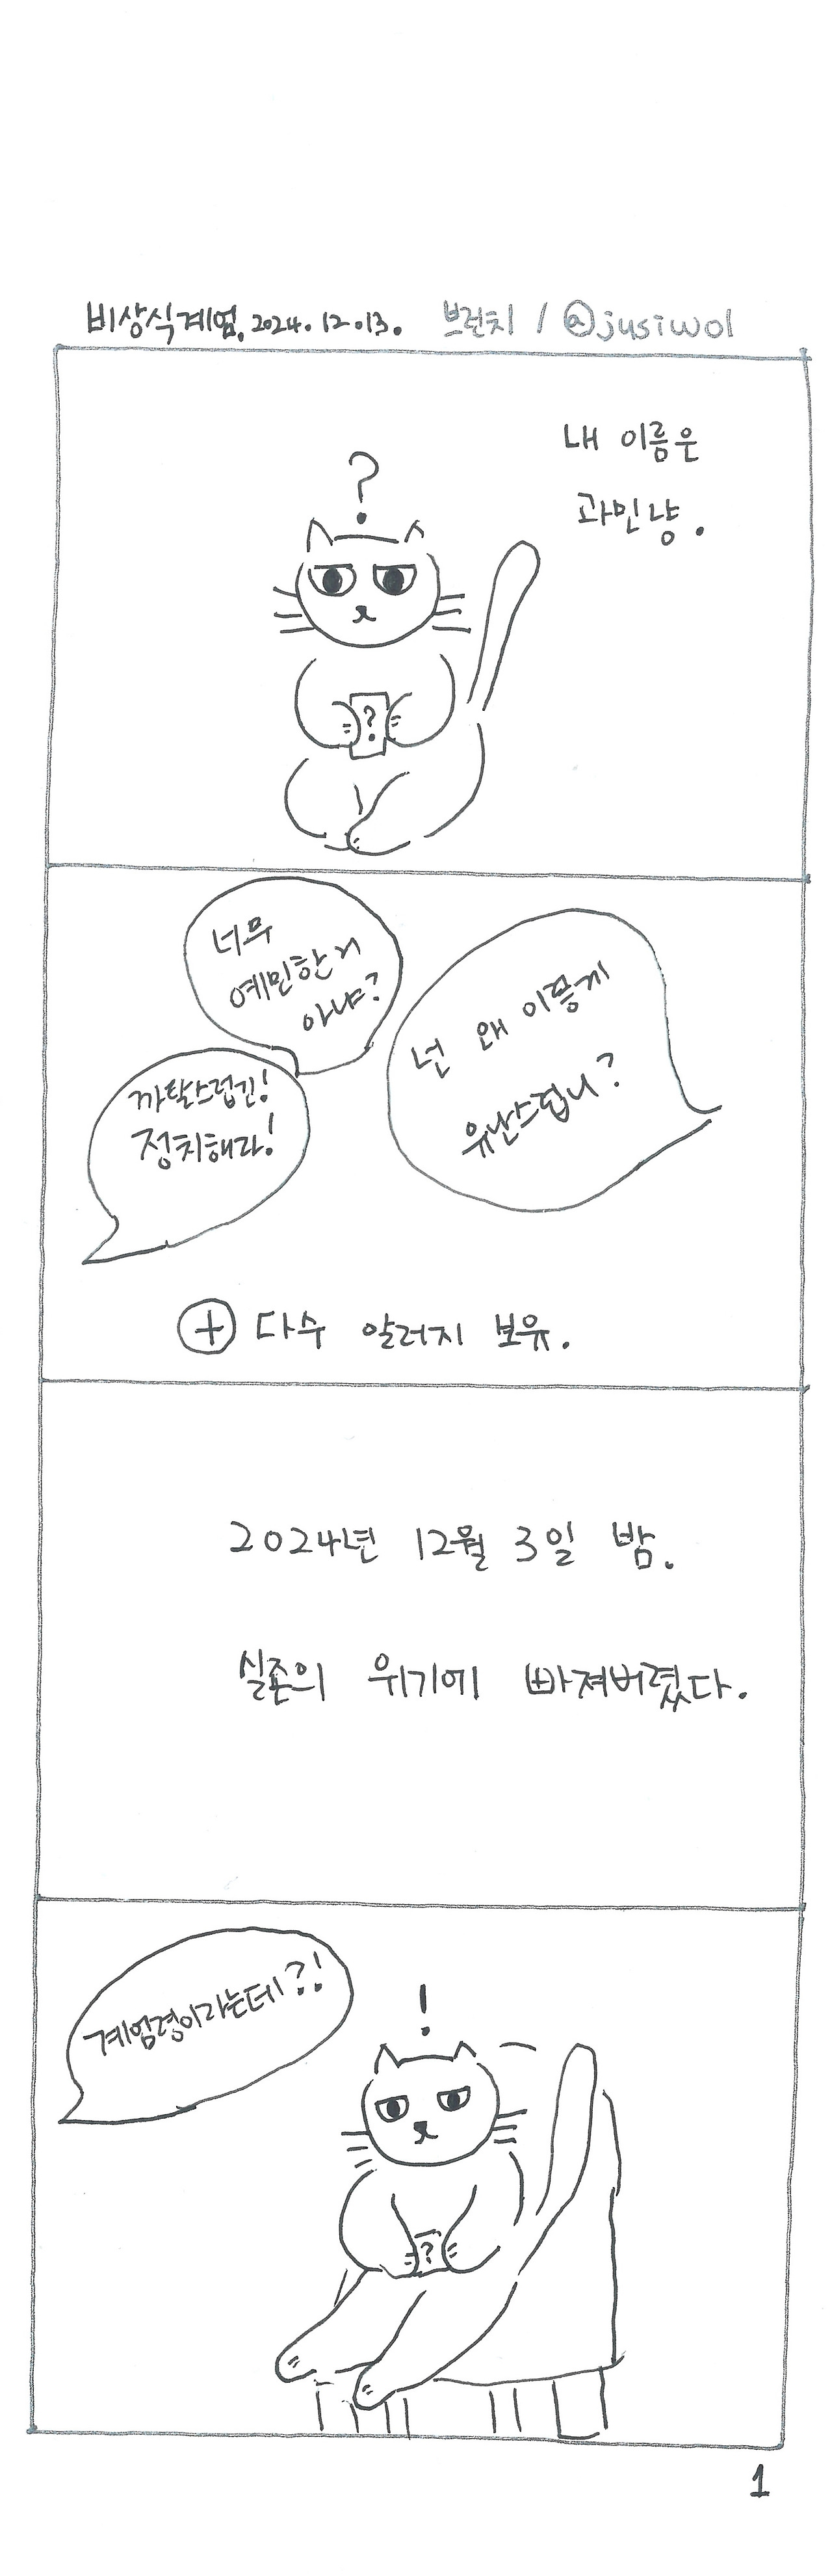 비상식계엄, 2024. 12. 13. 브런치 / @jusiwol
?
내 이름은
과민냥.
?
너무
예민한 거
아냐?
넌 왜 이렇게
유난스럽니?
까탈스럽긴!
정치해라!
+ 다수 알러지 보유.
2024년 12월 3일 밤.
실존의 위기에 빠져버렸다.
계엄령이라는데?!
!
?
1